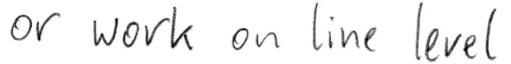 or work on line level